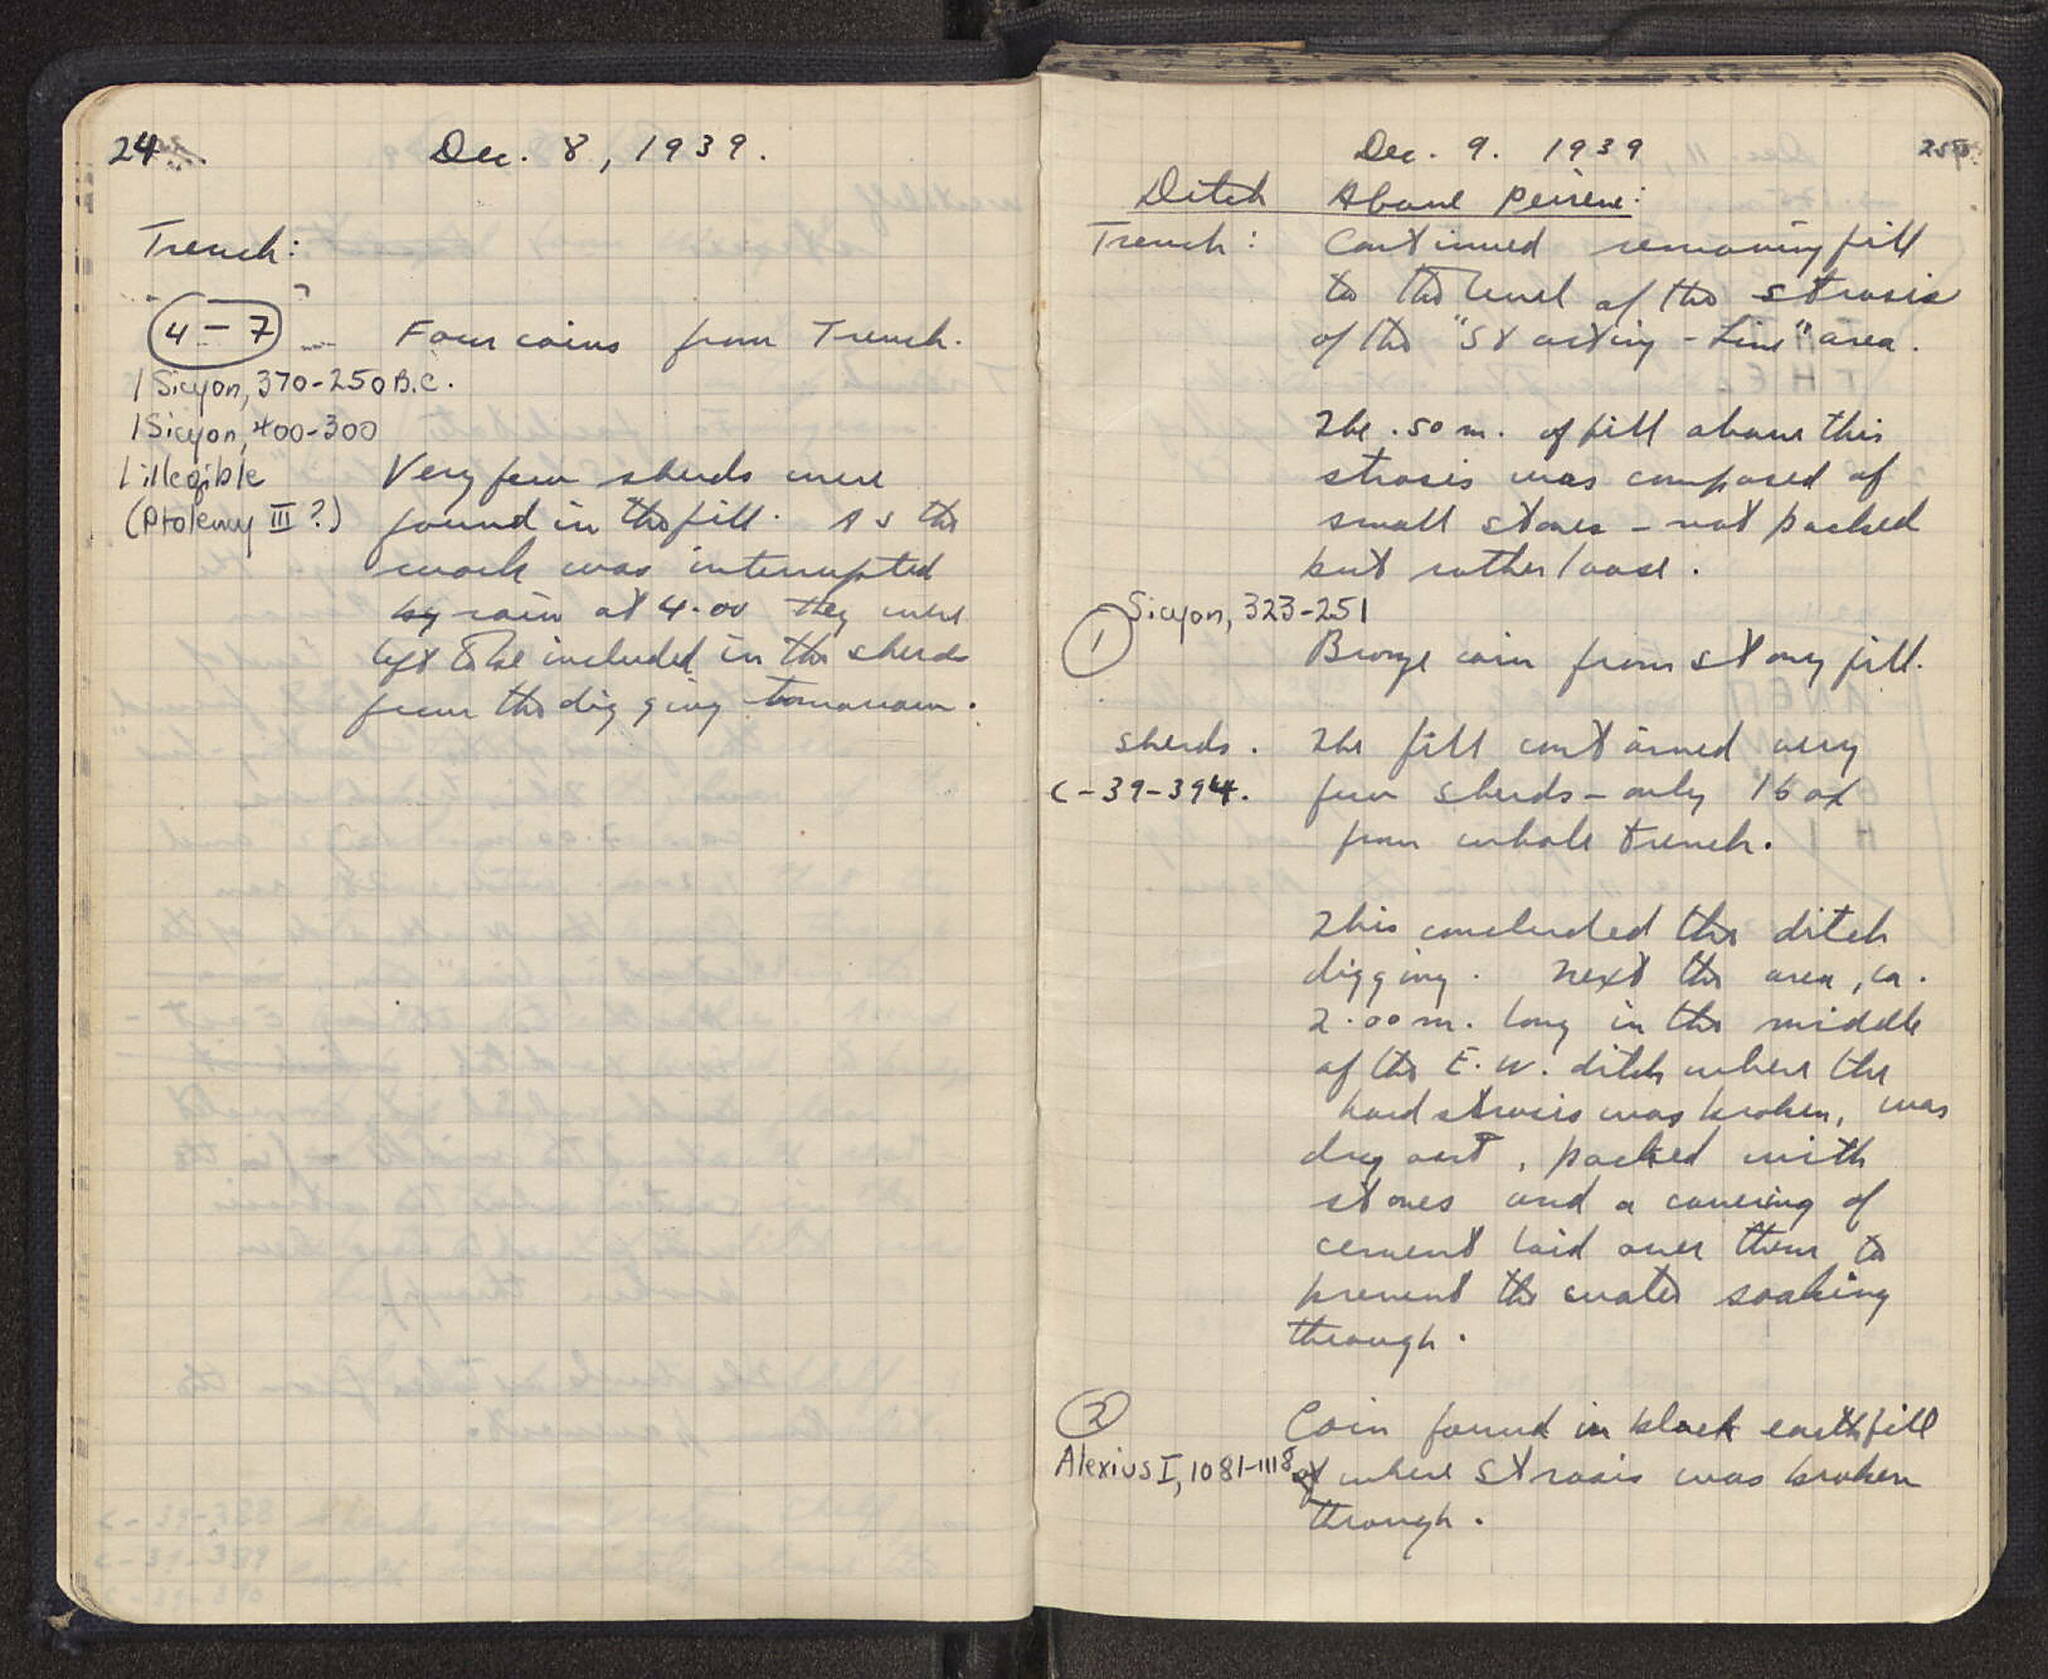 24
Dec. 8, 1939.
Trench:
4-7
Four coins from Trench.
1 Sicyon, 370-250 B.C.
1 Sicyon, 400-300
1 illegible
(Ptolemy III ?)
Very few sherds were
found in the fill. As the
work was interrupted
by rain at 4.00 they were
left to be included in the sherds
from the digging tomorrow.
Dec. 9. 1939
25
Ditch Above Peirene:
Trench: Continued removing fill
to the level of the strosis
of the "Starting-Line" area.
The .50 m. of fill above this
strosis was composed of
small stones - not packed
but rather loose.
Sicyon, 323-251
1
Bronze coin from stony fill.
sherds. The fill contained very
C-39-394. few sherds - only 16 of
from whole trench.
This concluded the ditch
digging. Next the area, ca.
2.00 m. long in the middle
of the E.W. ditch where the
hard strosis was broken, was
dug out, packed with
stones and a covering of
cement laid over them to
prevent the water soaking
through.
2
Coin found in black earth fill
Alexius I, 1081-1118
where strosis was broken
through.